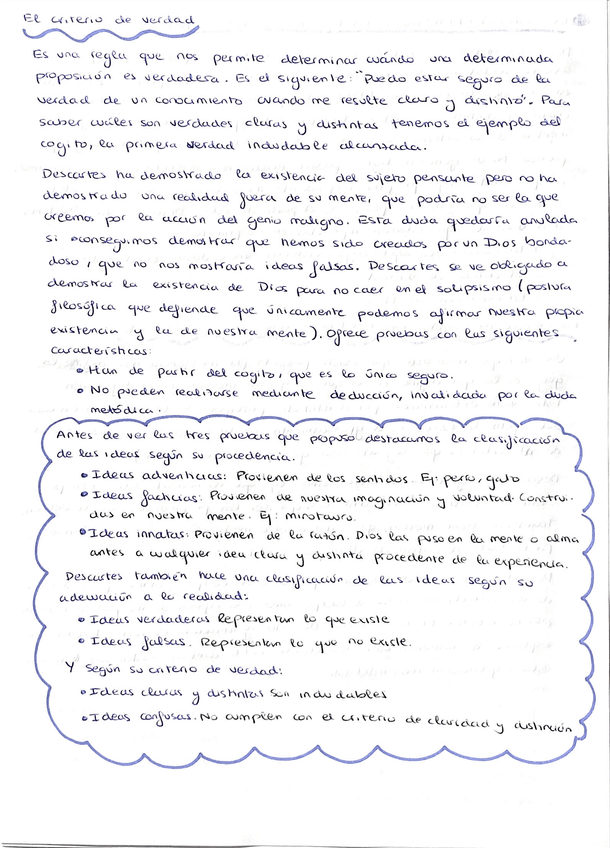 El criterio de verdad
Es una regla que nos permite determinar cuándo una determinada
proposición es verdadera. Es el siguiente: "Puedo estar seguro de la
verdad de un conocimiento cuando me resulte claro y distinto". Para
saber cuáles son verdades claras y distintas tenemos el ejemplo del
cogito, la primera verdad indudable alcanzada.
Descartes ha demostrado la existencia del sujeto pensante pero no ha
demostrado una realidad fuera de su mente, que podría no ser la que
creemos por la acción del genio maligno. Esta duda quedaría anulada
si conseguimos demostrar que hemos sido creados por un Dios bonda-
doso, que no nos mostraría ideas falsas. Descartes se ve obligado a
demostrar la existencia de Dios para no caer en el solipsismo (postura
filosófica que defiende que únicamente podemos afirmar nuestra propia
existencia y la de nuestra mente). Ofrece pruebas con las siguientes
características:
• Han de partir del cogito, que es lo único seguro.
• No pueden realizarse mediante deducción, invalidada por la duda
metódica.
Antes de ver las tres pruebas que propuso destacamos la clasificación
de las ideas según su procedencia.
• Ideas adventicias: Provienen de los sentidos. Ej: perro, gato
• Ideas facticias: Provienen de nuestra imaginación y voluntad. Construi-
das en nuestra mente. Ej: minotauro.
• Ideas innatas: Provienen de la razón. Dios las puso en la mente o alma
antes a cualquier idea clara y distinta procedente de la experiencia.
Descartes también hace una clasificación de las ideas según su
adecuación a la realidad:
• Ideas verdaderas Representan lo que existe
• Ideas falsas. Representan lo que no existe.
Y según su criterio de verdad:
• Ideas claras y distintas son indudables
• Ideas confusas. No cumplen con el criterio de claridad y distinción